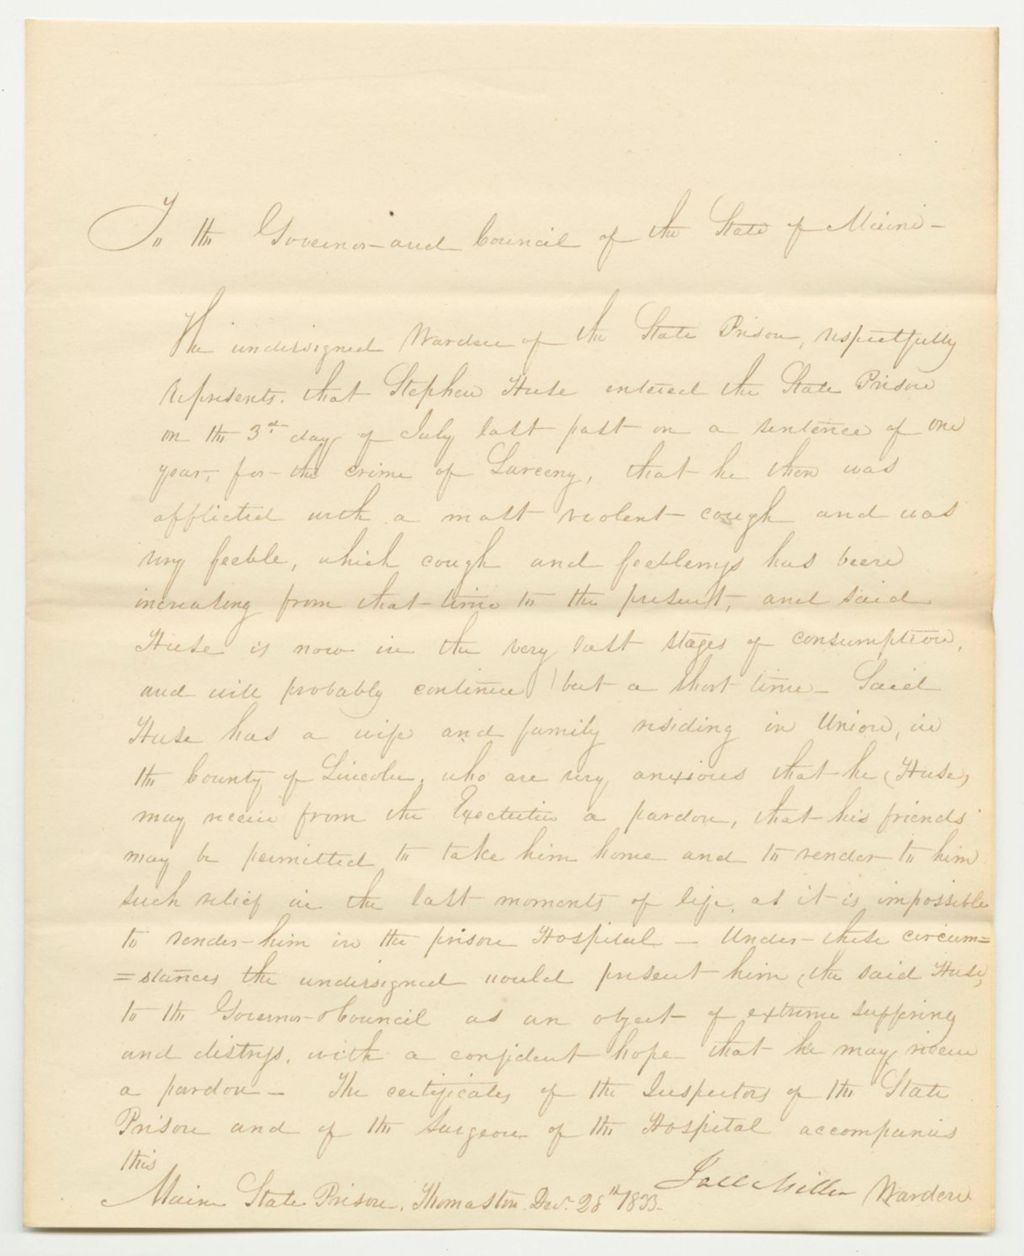 To the Governor and Council of the State of Maine-
The undersigned Warden of the State Prison, respectfully
represents. that Stephen Huse entered the State Prison
on the 3rd day of July last past on a sentence of one
year, for the crime of Larceny, that he then was
afflicted with a most violent cough and was
very feeble, which cough and feebleness has been
increasing from that time to the present, and said
Huse is now in the very last stages of consumption,
and will probably continue but a short time- Said
Huse has a wife and family residing in Union, in
the County of Lincoln, who are very anxious that he (Huse)
may receive from the Executive a pardon, that his friends
may be permitted to take him home and to render to him
such relief in the last moments of life, as it is impossible
to render him in the prison Hospital - Under these circum=
=stances the undersigned would present him (the said Huse)
to the Governor & Council as an object of extreme suffering
and distress, with a confident hope that he may receive
a pardon - The certificates of the Inspectors of the State
Prison and of the Surgeon of the Hospital accompanies
this
Joel Miller Warden
Maine State Prison, Thomaston Dec. 28th 1833.